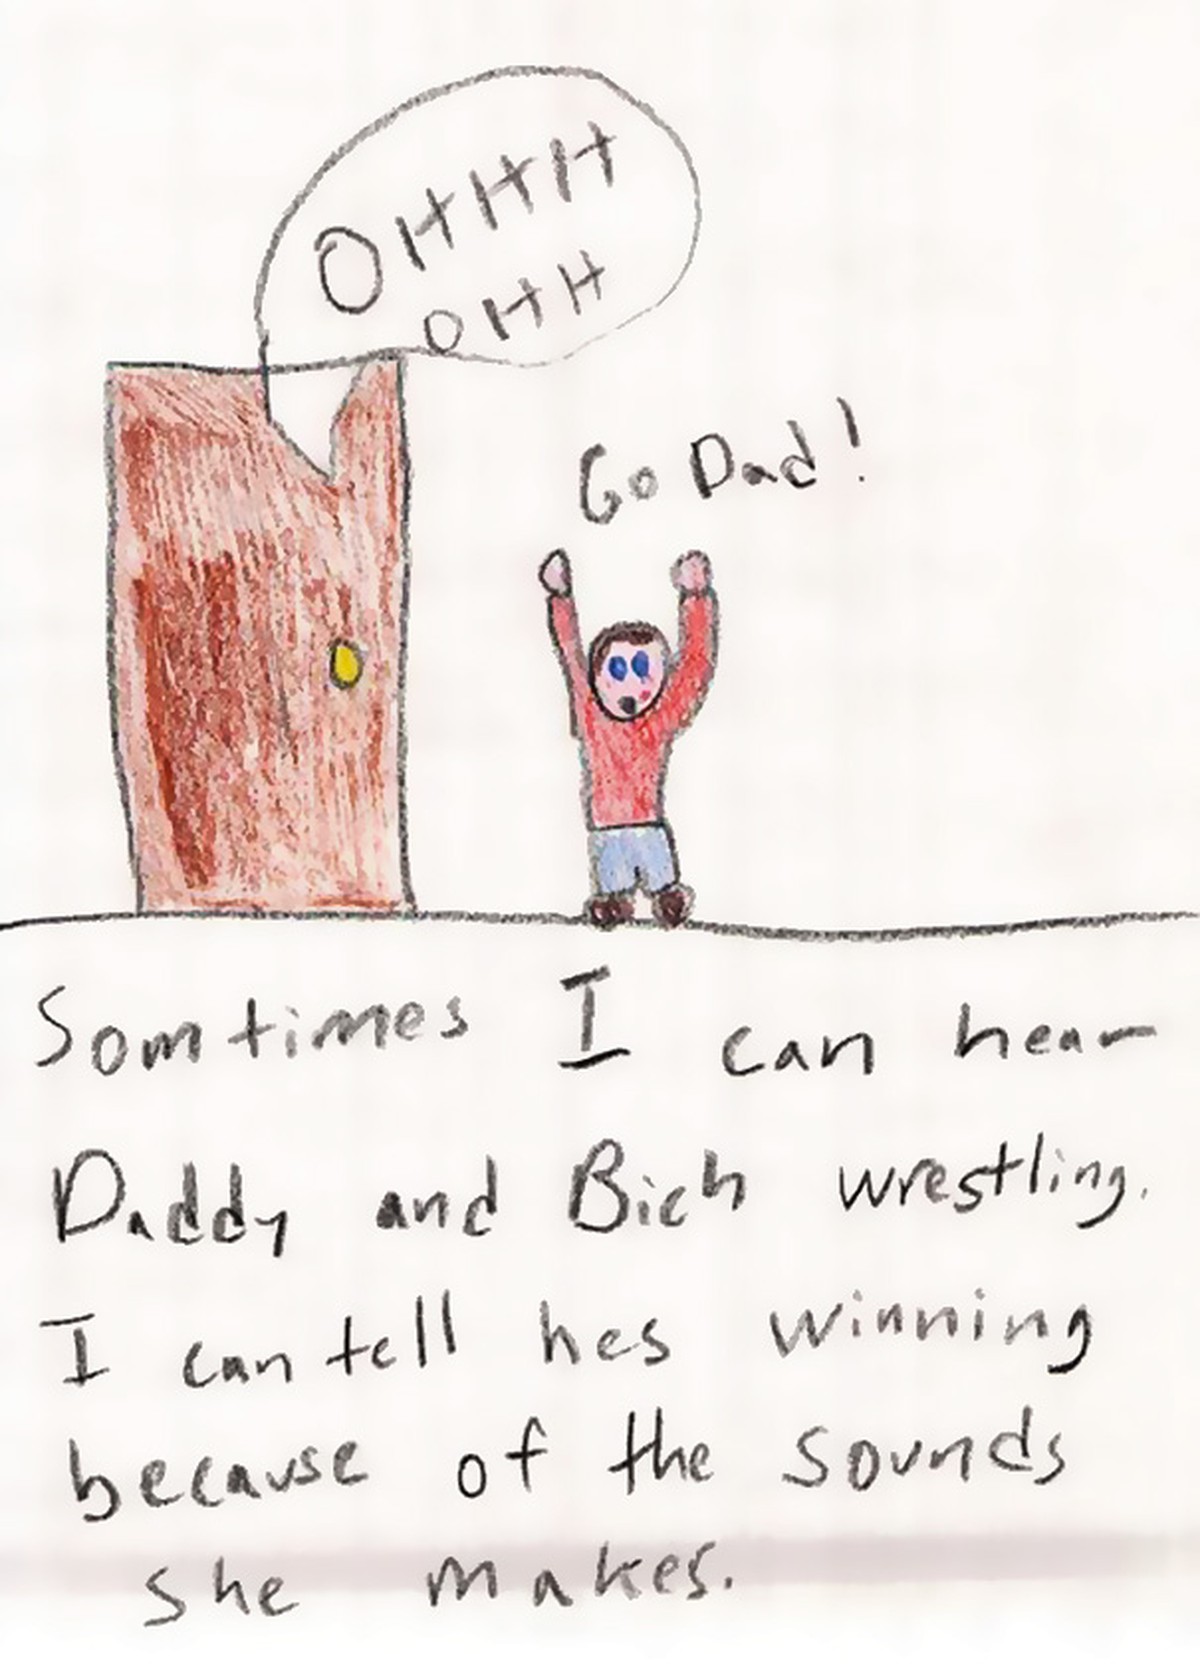 OHHH
OHH
Go Dad!
Somtimes I can hear
Daddy and Bich wrestling.
I can tell hes winning
because of the sounds
she makes.